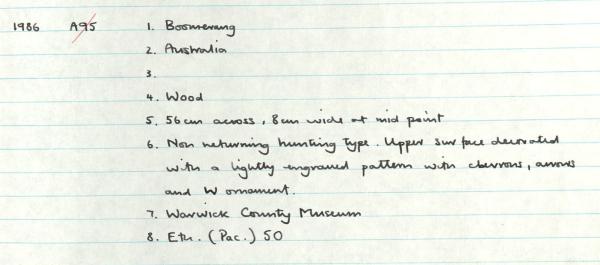 1986 A95 1. Boomerang
2. Australia
3.
4. Wood
5. 56cm across, 8cm wide at mid point
6. Non returning hunting type. Upper surface decorated
with a lightly engraved pattern with chevrons, arrows
and W ornament.
7. Warwick County Museum
8. Eth. (Pac.) 50